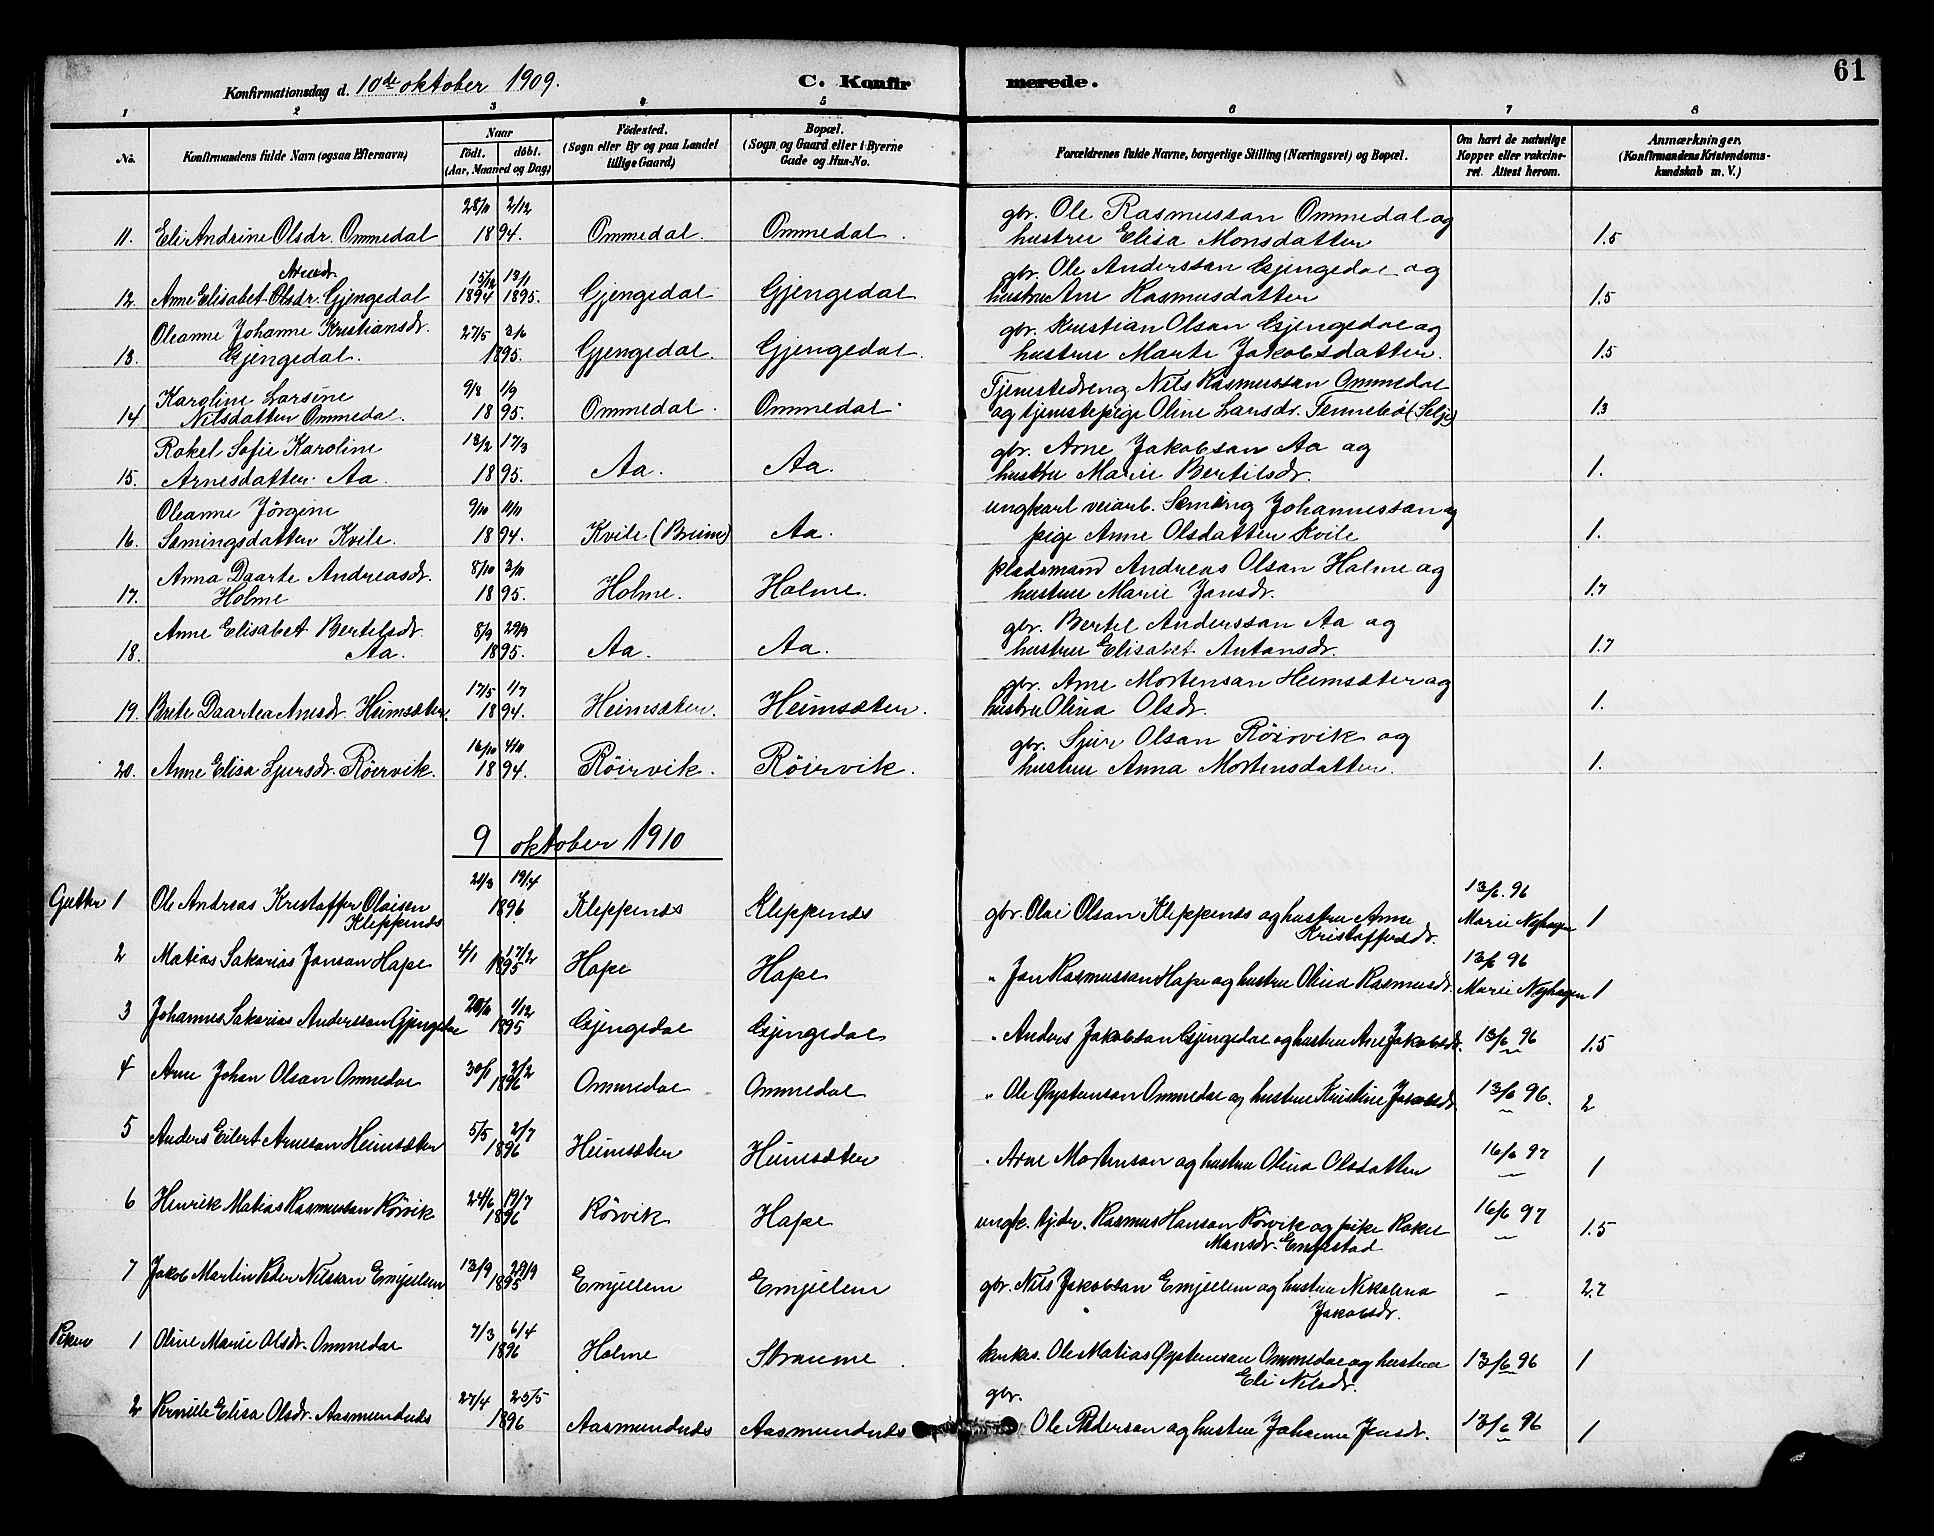 61
Konfirmationsdag d. 10de oktober 1909. C. Konfirmerede.
1 2 3 4 5 6 7 8
No. Konfirmandens fulde Navn (ogsaa Efternavn) Naar født. døbt. (Aar, Maaned og Dag) Födested. (Sogn eller By og paa Landet tillige Gaard) Bopæl. (Sogn og Gaard eller i Byerne Gade og Hus-No. Forældrenes fulde Navne, borgerlige Stilling (Næringsvei) og Bopæl. Om havt de naturlige Kopper eller vakcineret. Attest herom. Anmærkninger. (Konfirmandens Kristendomskundskab m. V.)
28/11 2/12 gbr. Ole Rasmussan Ommedal og
11. Eli Andrine Olsdr. Ommedal 1894. Ommedal. Ommedal. hustru Elisa Monsdatter 1.5
Arnesdr. 15/12 13/1 gbr. Ole Anderssan Gjengedal og
12. Anne Elisabet Olsdr. Gjengedal 1894 1895. Gjengedal Gjengedal hustru Ane Rasmusdatter 1.5
Oleanne Johanne Kristiansdr. 27/5 3/6 gbr. Kristian Olsan Gjengedal og
13. Gjengedal. 1895. Gjengedal. Gjengedal. hustru Marte Jakobsdatter. 1.5
Karoline Larsine 9/8 1/9 Tjenestedreng Nils Rasmussan Ommedal
14. Nilsdatter Ommedal. 1895. Ommedal. Ommedal. og tjenestepige Oline Larsdr. Tennebø (Selje) 1.3
Rakel Sofie Karoline 18/2 17/3 gbr. Arne Jakobsan Aa og
15. Arnesdatter Aa. 1895. Aa. Aa. hustru Marie Bertilsdr. 1.
Oleanne Jörgine 9/10 11/11 ungkarl veiarb. Seming Johannessan og
16. Semingsdatter Kvile. 1894. Kvile (Breim) Aa. pige Anne Olsdatter Kvile 1.
Anna Daarte Andreasdr. 8/10 3/11 pladsmand Andreas Olsan Holme og
17. Holme 1895. Holme. Holme. hustru Marie Jansdr. 1.7
Anne Elisabet Bertelsdr. 8/9 29/9 gbr. Bertel Anderssan Aa og
18. Aa. 1895. Aa. Aa. hustru Elisabet Antansdr. 1.7
17/5 1/7 gbr. Arne Mortensan Heimsæter og
19. Brite Daartea Arnesdr. Heimsæter. 1894. Heimsæter. Heimsæter. hustru Olina Olsdr. 1.
16/10 4/11 gbr. Sjur Olsan Röirvik og
20. Anne Elisa Sjursdr. Röirvik. 1894. Röirvik. Röirvik. hustru Anna Mortensdatter. 1.
9 oktober 1910
21/3 19/4 13/6. 96
Gutter 1 Ole Andreas Kristaffer Olaisen 1896 Kleppenes Kleppenes gbr. Olai Olsan Kleppenes og hustru Anne Marie Nyhagen 1
Kleppenes Kristoffersdr.
2 Matias Sakarias Jansan Hope 4/1 17/2 1895 Hope Hope " Jan Rasmussan Hope og hustru Olina Rasmusdr. 13/6 96 Marie Nyhagen 1
3 Johannes Sakarias Anderssan Gjengedal 1/12 1895 Gjengedal Gjengedal " Anders Jakobsan Gjengedal og hustru Ane Jakobsdr. 13/6 96 1.5
4 Arne Johan Olsan Ommedal 30/1 2/2 1896 Ommedal Ommedal " Ole Øystensan Ommedal og hustru Kristine Jakobsdr. 13/6 96. 2
5 Anders Eilert Arnesan Heimsæter 5/5 2/7 1896 Heimsæter Heimsæter " Arne Mortensan og hustru Olina Olsdatter 16/6 97 1
6 Henrik Matias Rasmussan Rörvik 24/6 19/7 1896 Rörvik Hope ungk. tjdr. Rasmus Hansan Rörvik og pike Rakel 16/6 97 1.5
Mansdr.
7 Jakob Martin Peder Nilsan Emjellem 13/9 29/9 1895 Emjellem Emjellem gbr. Nils Jakobsan Emjellem og hustru Nikolena - 2.7
Jakobsdr.
Piker 1 Oline Marie Olsdr. Ommedal 7/3 6/4 1896 Holme Straume Ole Matias Øystensan Ommedal og hustru 13/6 96 1
Eli Nilsdr.
gbr.
2 Pernille Elisa Olsdr. Aasmundnes 27/4 25/5 1896 Aasmundnes Aasmundnes Ole Pedersan og hustru Johanne Jensdr. 13/6 96 1